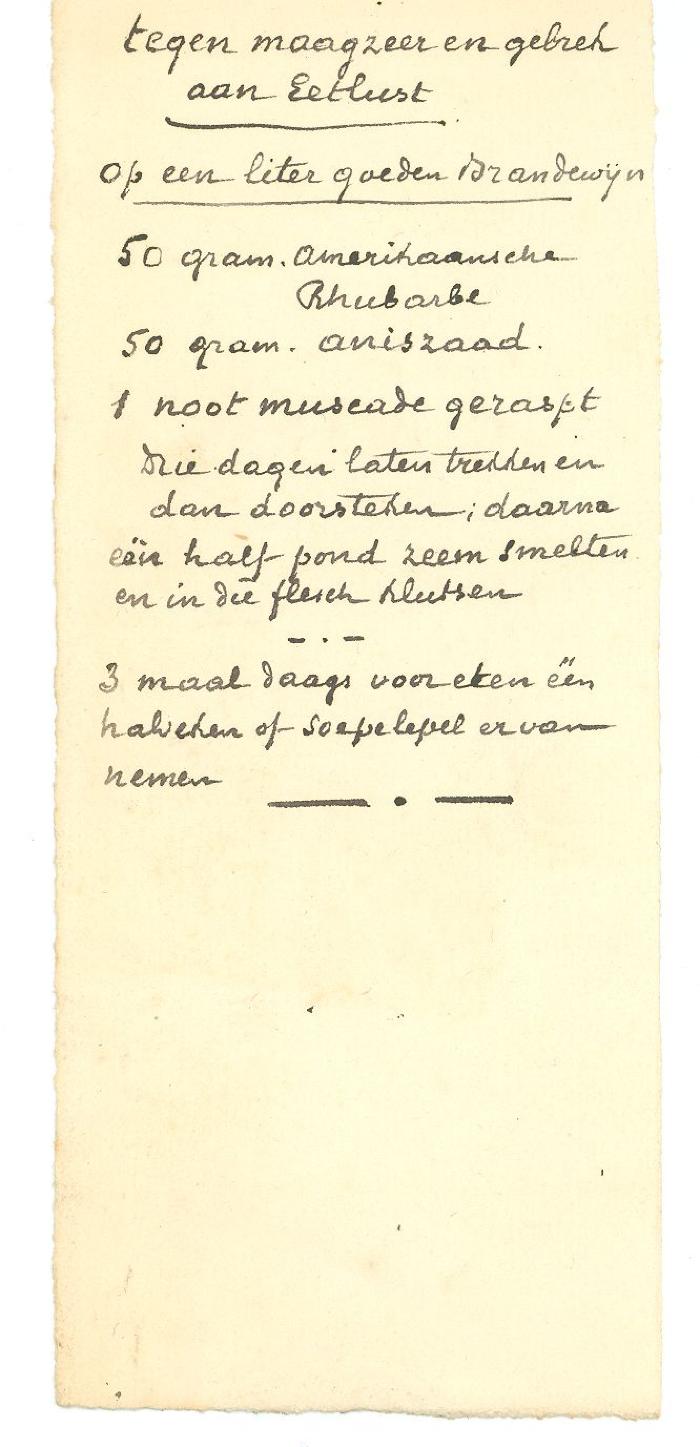 tegen maagzeer en gebrek
aan Eetlust
Op een liter goeden Brandewijn
50 gram. Amerikaansche
Rhubarbe
50 gram. aniszaad.
1 noot muscade geraspt
Drie dagen laten trekken en
dan doorsteken; daarna
een half pond zeem smelten
en in die flesch klutsen
- . -
3 maal daags voor eten één
halveken of soepelepel ervan
nemen
— . —